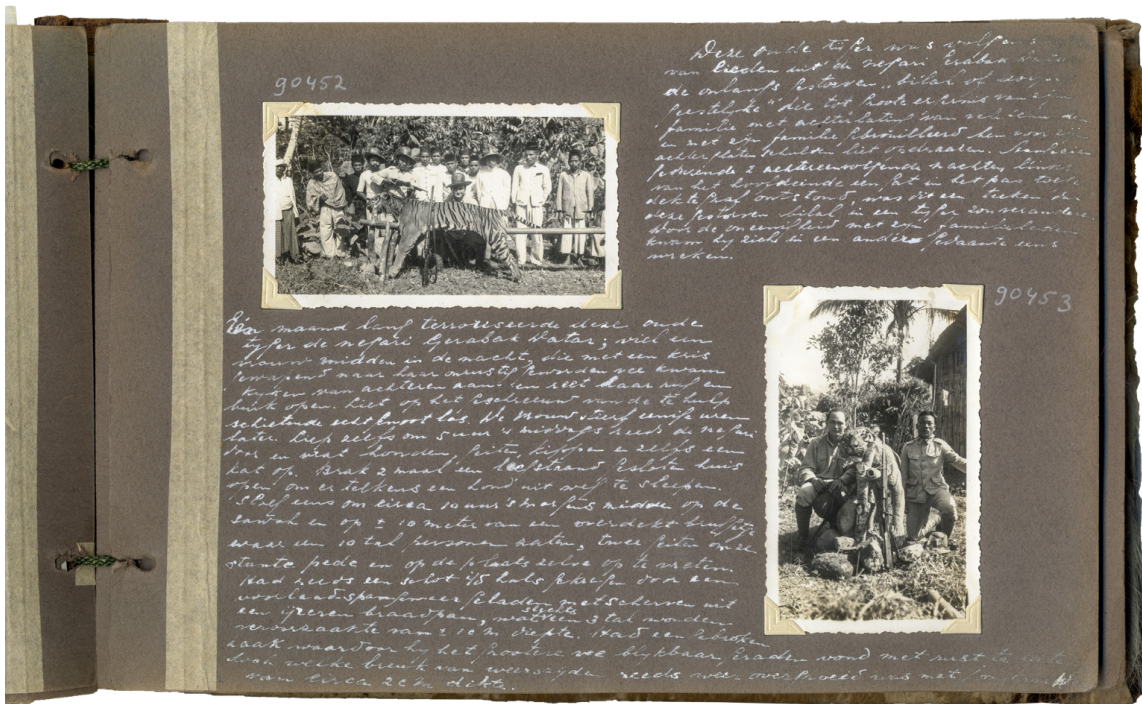 90452
Deze oude tijger was volgens
van lieden uit de negari Grabak
de onlangs gestorven "bilal of
geestelijke" die tot groote ergernis van zijn
familie met achterlating van
en met zijn familie gebrouilleerd hen voor zijn
achter
gedurende 2 achtereenvolgende nachten
van het hoofdeinde een gat in het pas toege
dekte graf ontstond, was dit een teeken dat
deze gestorven bilal in een tijger zou veranderen.
Door de oneenigheid met zijn familieleden
kwam hij zich in een andere gedaante eens
wreken.
90453
Een maand lang terroriseerde deze oude
tijger de negari Grabak Datar; viel een
vrouw midden in de nacht, die met een kris
gewapend naar haar onrustig geworden vee kwam
kijken van achteren aan en reet haar rug en
buik open. Liet op het geschreeuw van de te hulp
schietende echtgenoot los. De vrouw stierf eenige uren
later. Liep zelfs om 5 uur 's middags reeds de negari
door en vrat honden, geiten, kippen en zelfs een
kat op. Brak 2 maal een gesloten huis
open om er telkens een hond uit weg te sleepen
Sloeg eens om circa 10 uur 's morgens midden op de
sawah en op ± 10 meter van een overdekt brugje
waar een 10 tal personen zaten, twee geiten om
stante pede en op de plaats zelve op te vreten.
Had reeds een schot i/d hals gekregen door een
voorlaadspangeweer geladen met scherven uit
een ijzeren braadpan, wat slechts een 3 tal wonden
veroorzaakte van ± 10 c.M. diepte. Had een gebroken
kaak waardoor hij het grootere vee blijkbaar
welke breuk van weerszijden reeds weer overgroeid was met
van circa 2 c.M. dikte.